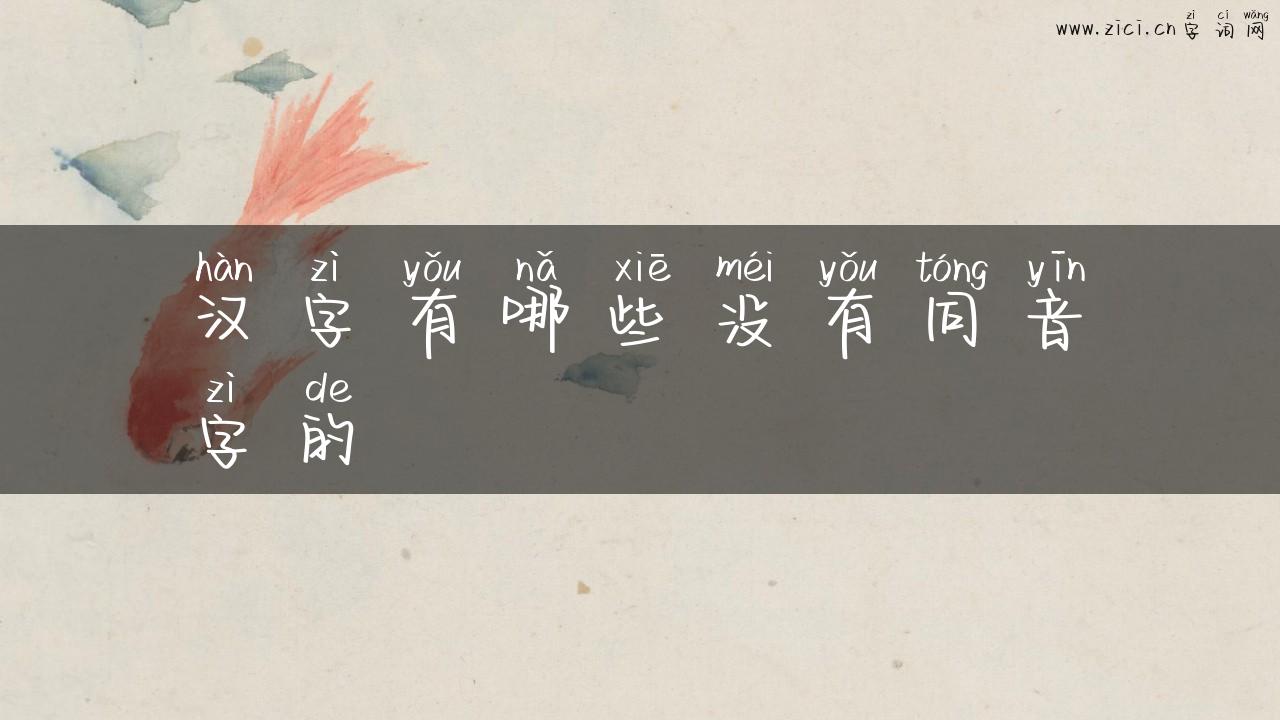 zì cí wǎng
www.zici.cn 字 词 网
hàn zì yǒu nǎ xiē méi yǒu tóng yīn
汉 字 有 哪 些 没 有 同 音
zì de
字 的